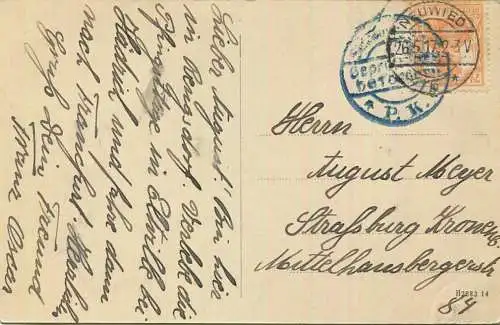 Lieber August! Bin hier
in Rengsdorf. Verlebe die
Pfingsttage in Eltville bei
und fahre dann
nach Frankfurt. Herzlich
Gruß Dein Freund
Franz
NEUWIED
26.5.17. 2-3 V
Geprüft
P. K.
Herrn
August Meyer
Straßburg Kronenbg
Mittelhausbergerstr
84
H2882 14